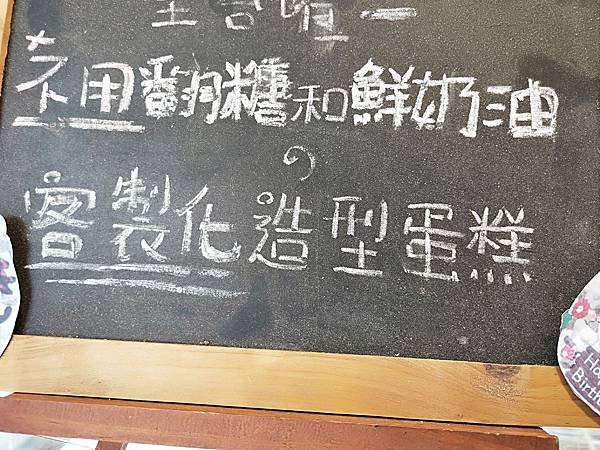 不用翻糖和鮮奶油
の
客製化造型蛋糕